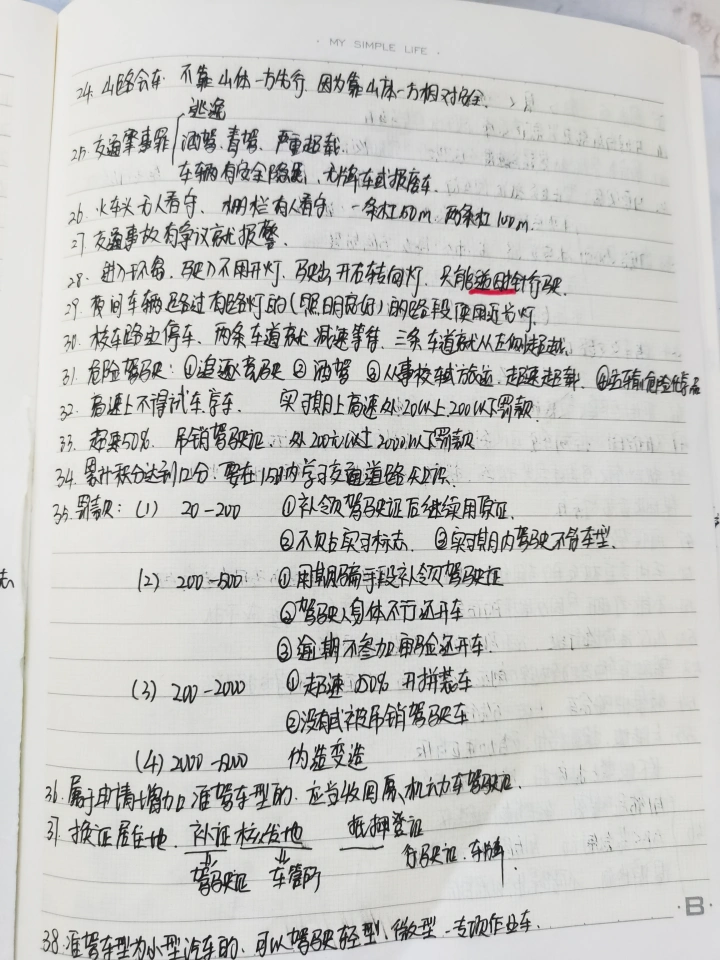 · MY SIMPLE LIFE ·
24. 山路会车 不靠山体一方先行. 因为靠山体一方相对安全.
逃逸
25. 交通肇事罪 酒驾、毒驾、严重超载
车辆有安全隐患、无牌车或报废车.
26. 火车头无人看守、栅栏有人看守、一条杠50m. 两条杠100m.
27 交通事故有争议就报警.
28. 进入环岛. 驶入不用开灯. 驶出开右转向灯. 只能逆时针行驶.
29. 夜间车辆通过有路灯的(照明良好)的路段使用近光灯.
30. 校车路边停车. 两条车道就减速等待. 三条车道就从左侧超越.
31. 危险驾驶: ①追逐竞驶 ② 酒驾 ③从事校车或旅运. 超速超载. ④运输危险化学品
32. 高速上不得试车学车. 实习期上高速处20以上200以下罚款.
33. 超速50% 吊销驾驶证. 处200元以上2000以下罚款
34. 累计积分达到12分. 要在15日内学习交通道路
35. 罚款: (1) 20-200 ①补领驾驶证后继续用原证.
②不贴实习标志. ③实习期内驾驶不符车型.
(2) 200-500 ①用欺骗手段补领驾驶证
②驾驶人身体不行还开车
③逾期不参加审验还开车
(3) 200-2000 ①超速 50% 开拼装车
②没有或被吊销驾驶车
(4) 2000-5000 伪造变造
36. 属于申请增加准驾车型的. 应当收回原机动车驾驶证.
37. 换证居住地. 补证核发地 抵押登记
驾驶证 车管所 行驶证. 车牌.
38. 准驾车型为小型汽车的. 可以驾驶轻型、微型、专项作业车.
· B